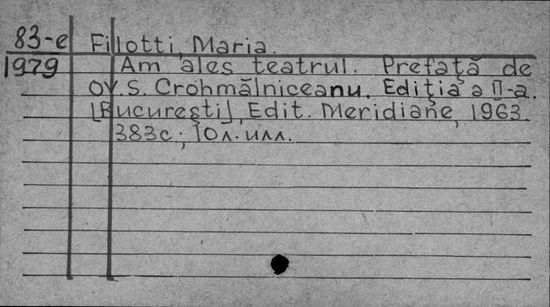 83-e Filotti, Maria.
1979 Am ales teatrul. Prefaţă de
Ov. S. Crohmălniceanu. Ediţia a II-a.
[Bucureşti], Edit. Meridiane, 1963.
383с.; 10л. илл.